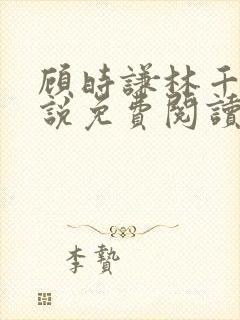 顾時謙林千
說免費閱讀
李贄